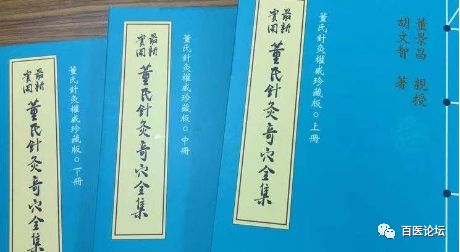 董景昌 親授
胡文智 著
董氏針灸權威珍藏版○上冊
最新
實用
董氏針灸奇穴全集
董氏針灸權威珍藏版○中冊
最新
實用
董氏針灸奇穴全集
董氏針灸權威珍藏版○下冊
最新
實用
董氏針灸奇穴全集
百医论坛